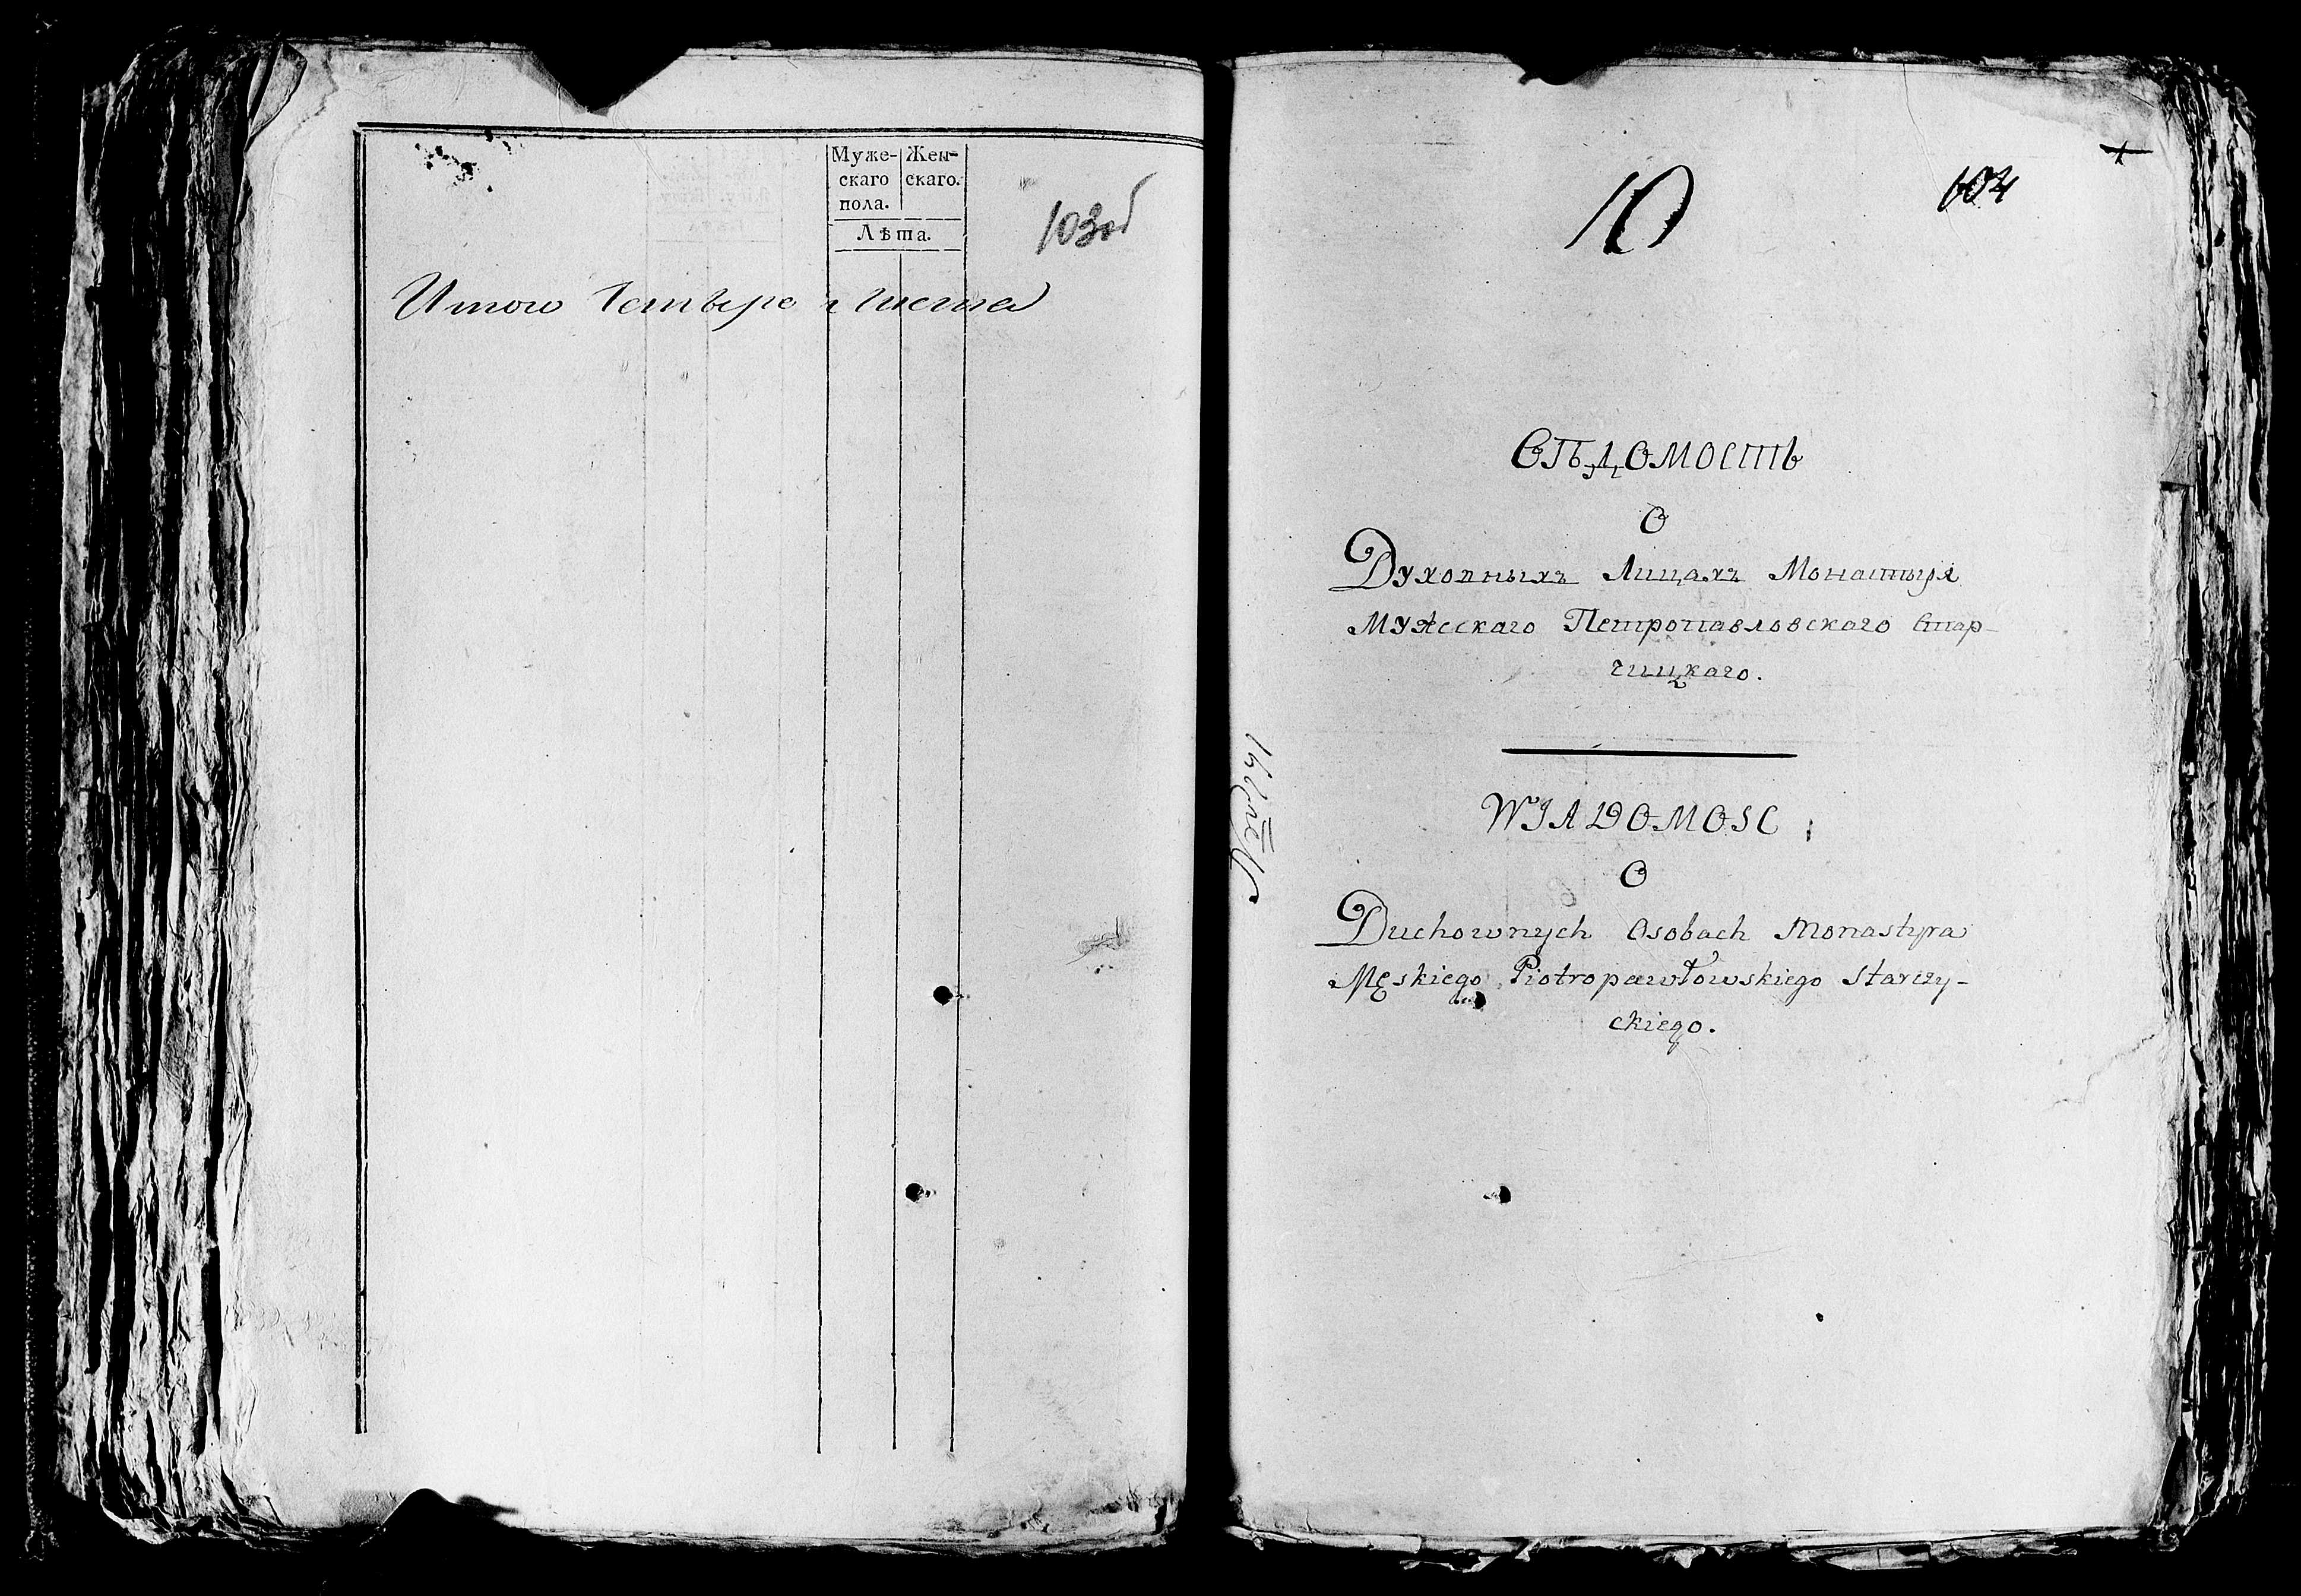 Муже- Жен-
скаго скаго.
пола.
Лѣта.
103об
Итого Четыре Листа
10
104
Вѣдомость
О
Духовныхъ Лицахъ Монастыря
Мужескаго Петропавловскаго Стар-
чицкаго.
WJADOMOSC
O
Duchownych Osobach Monastyra
Męskiego Piotropawłowskiego Starczy-
ckiego.